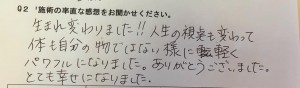 Q2 施術の率直な感想をお聞かせください。
生まれ変わりました!!人生の視点も変わって
体も自分の物ではない様に軽く
パワフルになりました。ありがとうございました。
とても幸せになりました。